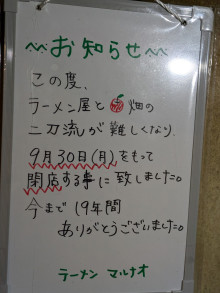 〰お知らせ〰
この度、
ラーメン屋と🍎畑の
二刀流が難しくなり、
9月30日(月)をもって
閉店する事に致しました。
今まで19年間
ありがとうございました。
ラーメン マルナオ